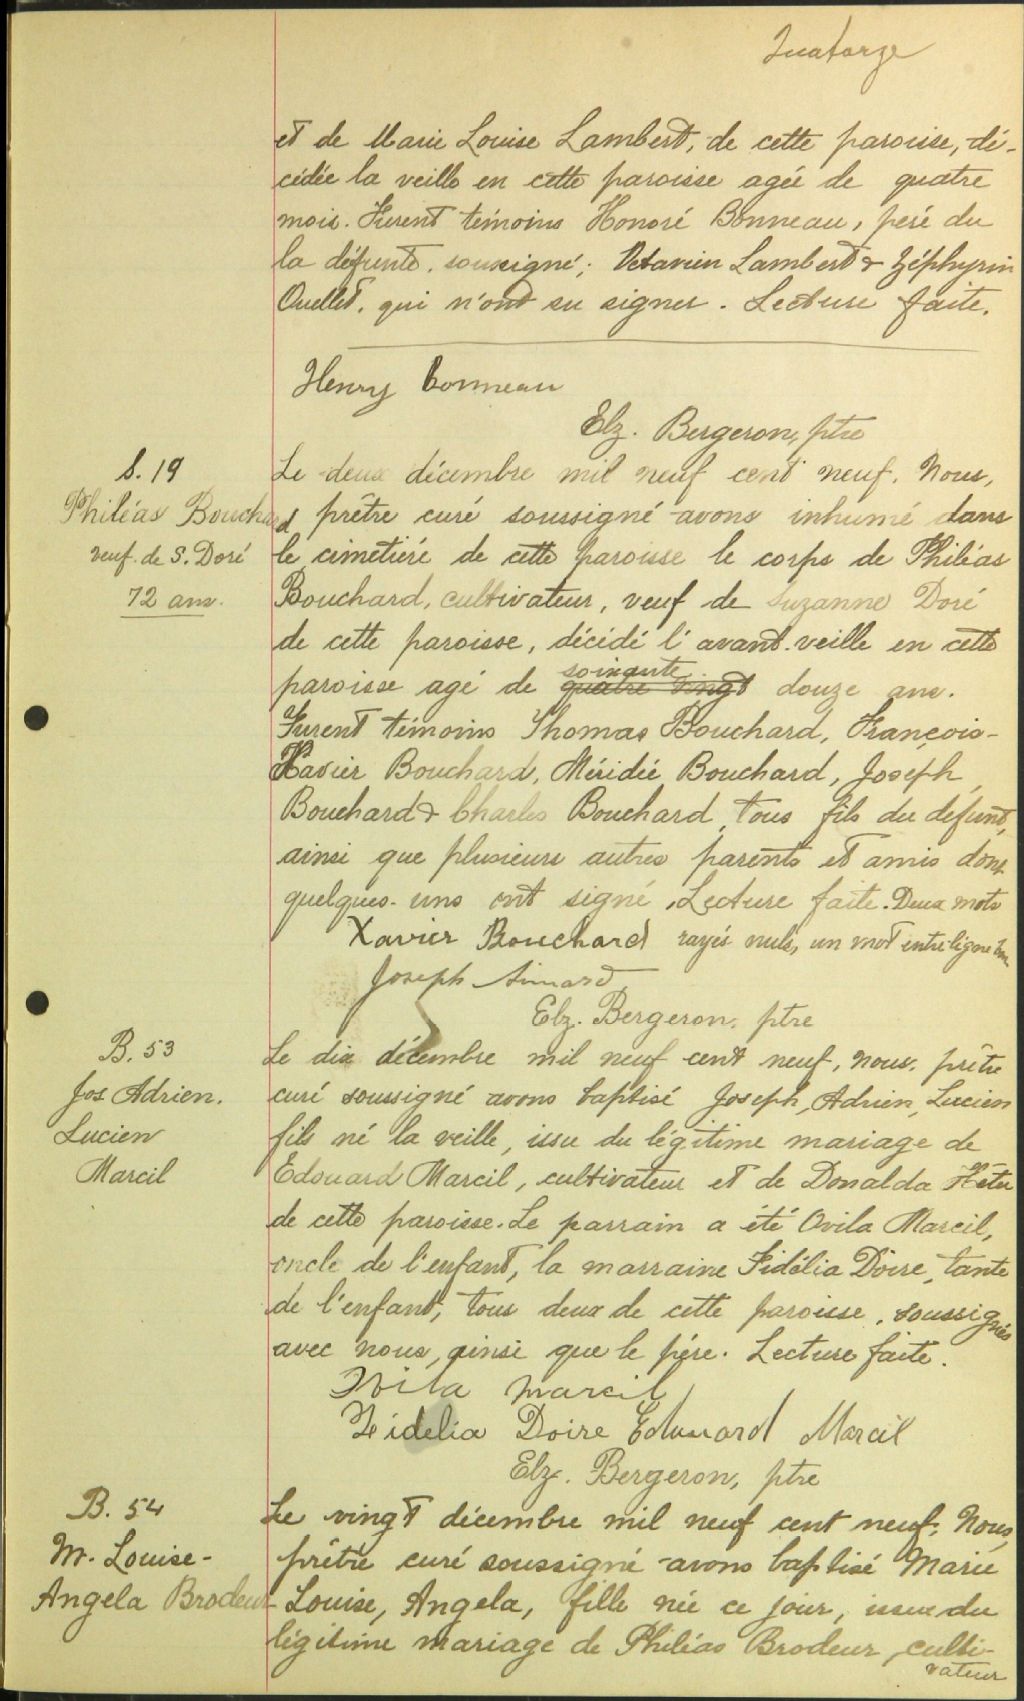 Quatorze
et de Marie Louise Lambert, de cette paroisse, dé-
cédée la veille en cette paroisse agée de quatre
mois. Furent témoins Honoré Bonneau, père du
la défunte, soussigné; Octavien Lambert & Zéphyrin
Ouellet, qui n'ont su signer. Lecture faite.
Henry Bonneau
Elz. Bergeron, ptre
S. 19
Philéas Bouchard
veuf de S. Doré
72 ans.
Le deux décembre mil neuf cent neuf, Nous,
prêtre curé soussigné avons inhumé dans
le cimetière de cette paroisse le corps de Philéas
Bouchard, cultivateur, veuf de Suzanne Doré
de cette paroisse, décédé l'avant-veille en cette
soixante
paroisse agé de quatre vingt douze ans.
Furent témoins Thomas Bouchard, François-
Xavier Bouchard, Méridée Bouchard, Joseph
Bouchard & Charles Bouchard, tous fils du défunt,
ainsi que plusieurs autres parents et amis dont
quelques-uns ont signé. Lecture faite. Deux mots
Xavier Bouchard rayés nuls, un mot entreligne
Joseph Simard
Elz. Bergeron, ptre
B. 53
Jos Adrien.
Lucien
Marcil
Le dix décembre mil neuf cent neuf, nous, prêtre
curé soussigné avons baptisé Joseph, Adrien, Lucien
fils né la veille, issu du légitime mariage de
Edouard Marcil, cultivateur et de Donalda Hétu
de cette paroisse. Le parrain a été Ovila Marcil,
oncle de l'enfant, la marraine Fidélia Doire, tante
de l'enfant, tous deux de cette paroisse, soussignés
avec nous, ainsi que le père. Lecture faite.
Ovila Marcil
Fidelia Doire Edouard Marcil
Elz. Bergeron, ptre
B. 54
M. Louise-
Angela Brodeur
Le vingt décembre mil neuf cent neuf, Nous,
prêtre curé soussigné avons baptisé Marie
Louise, Angela, fille née ce jour, issue du
légitime mariage de Philéas Brodeur, culti-
vateur